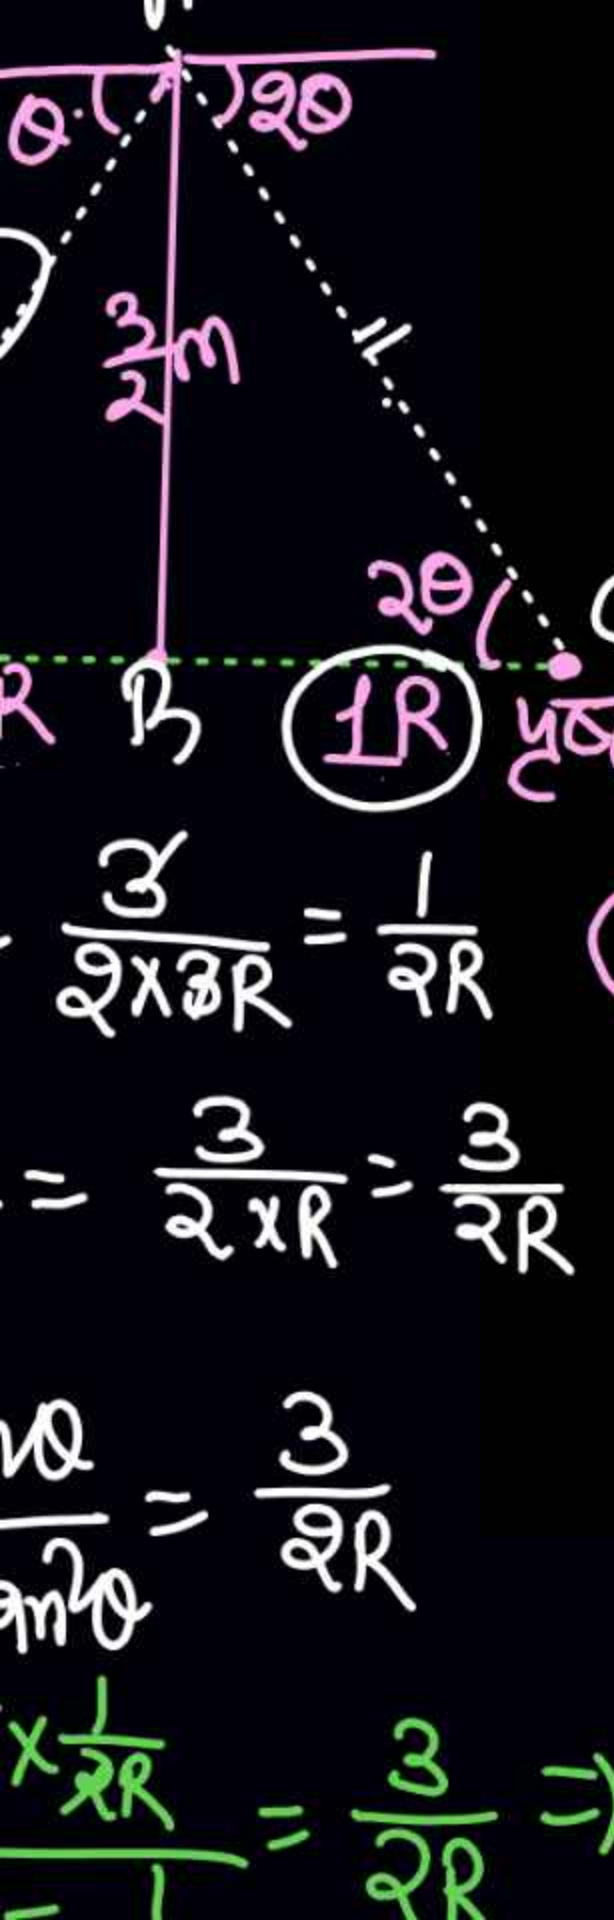 θ 2θ
3/2 m
2θ
R B 1R पृष्ठ
3/(2×3R) = 1/(2R)
= 3/(2×R) = 3/(2R)
θ/an²θ = 3/(2R)
× 1/(2R) / – 1 = 3/(2R) ⇒